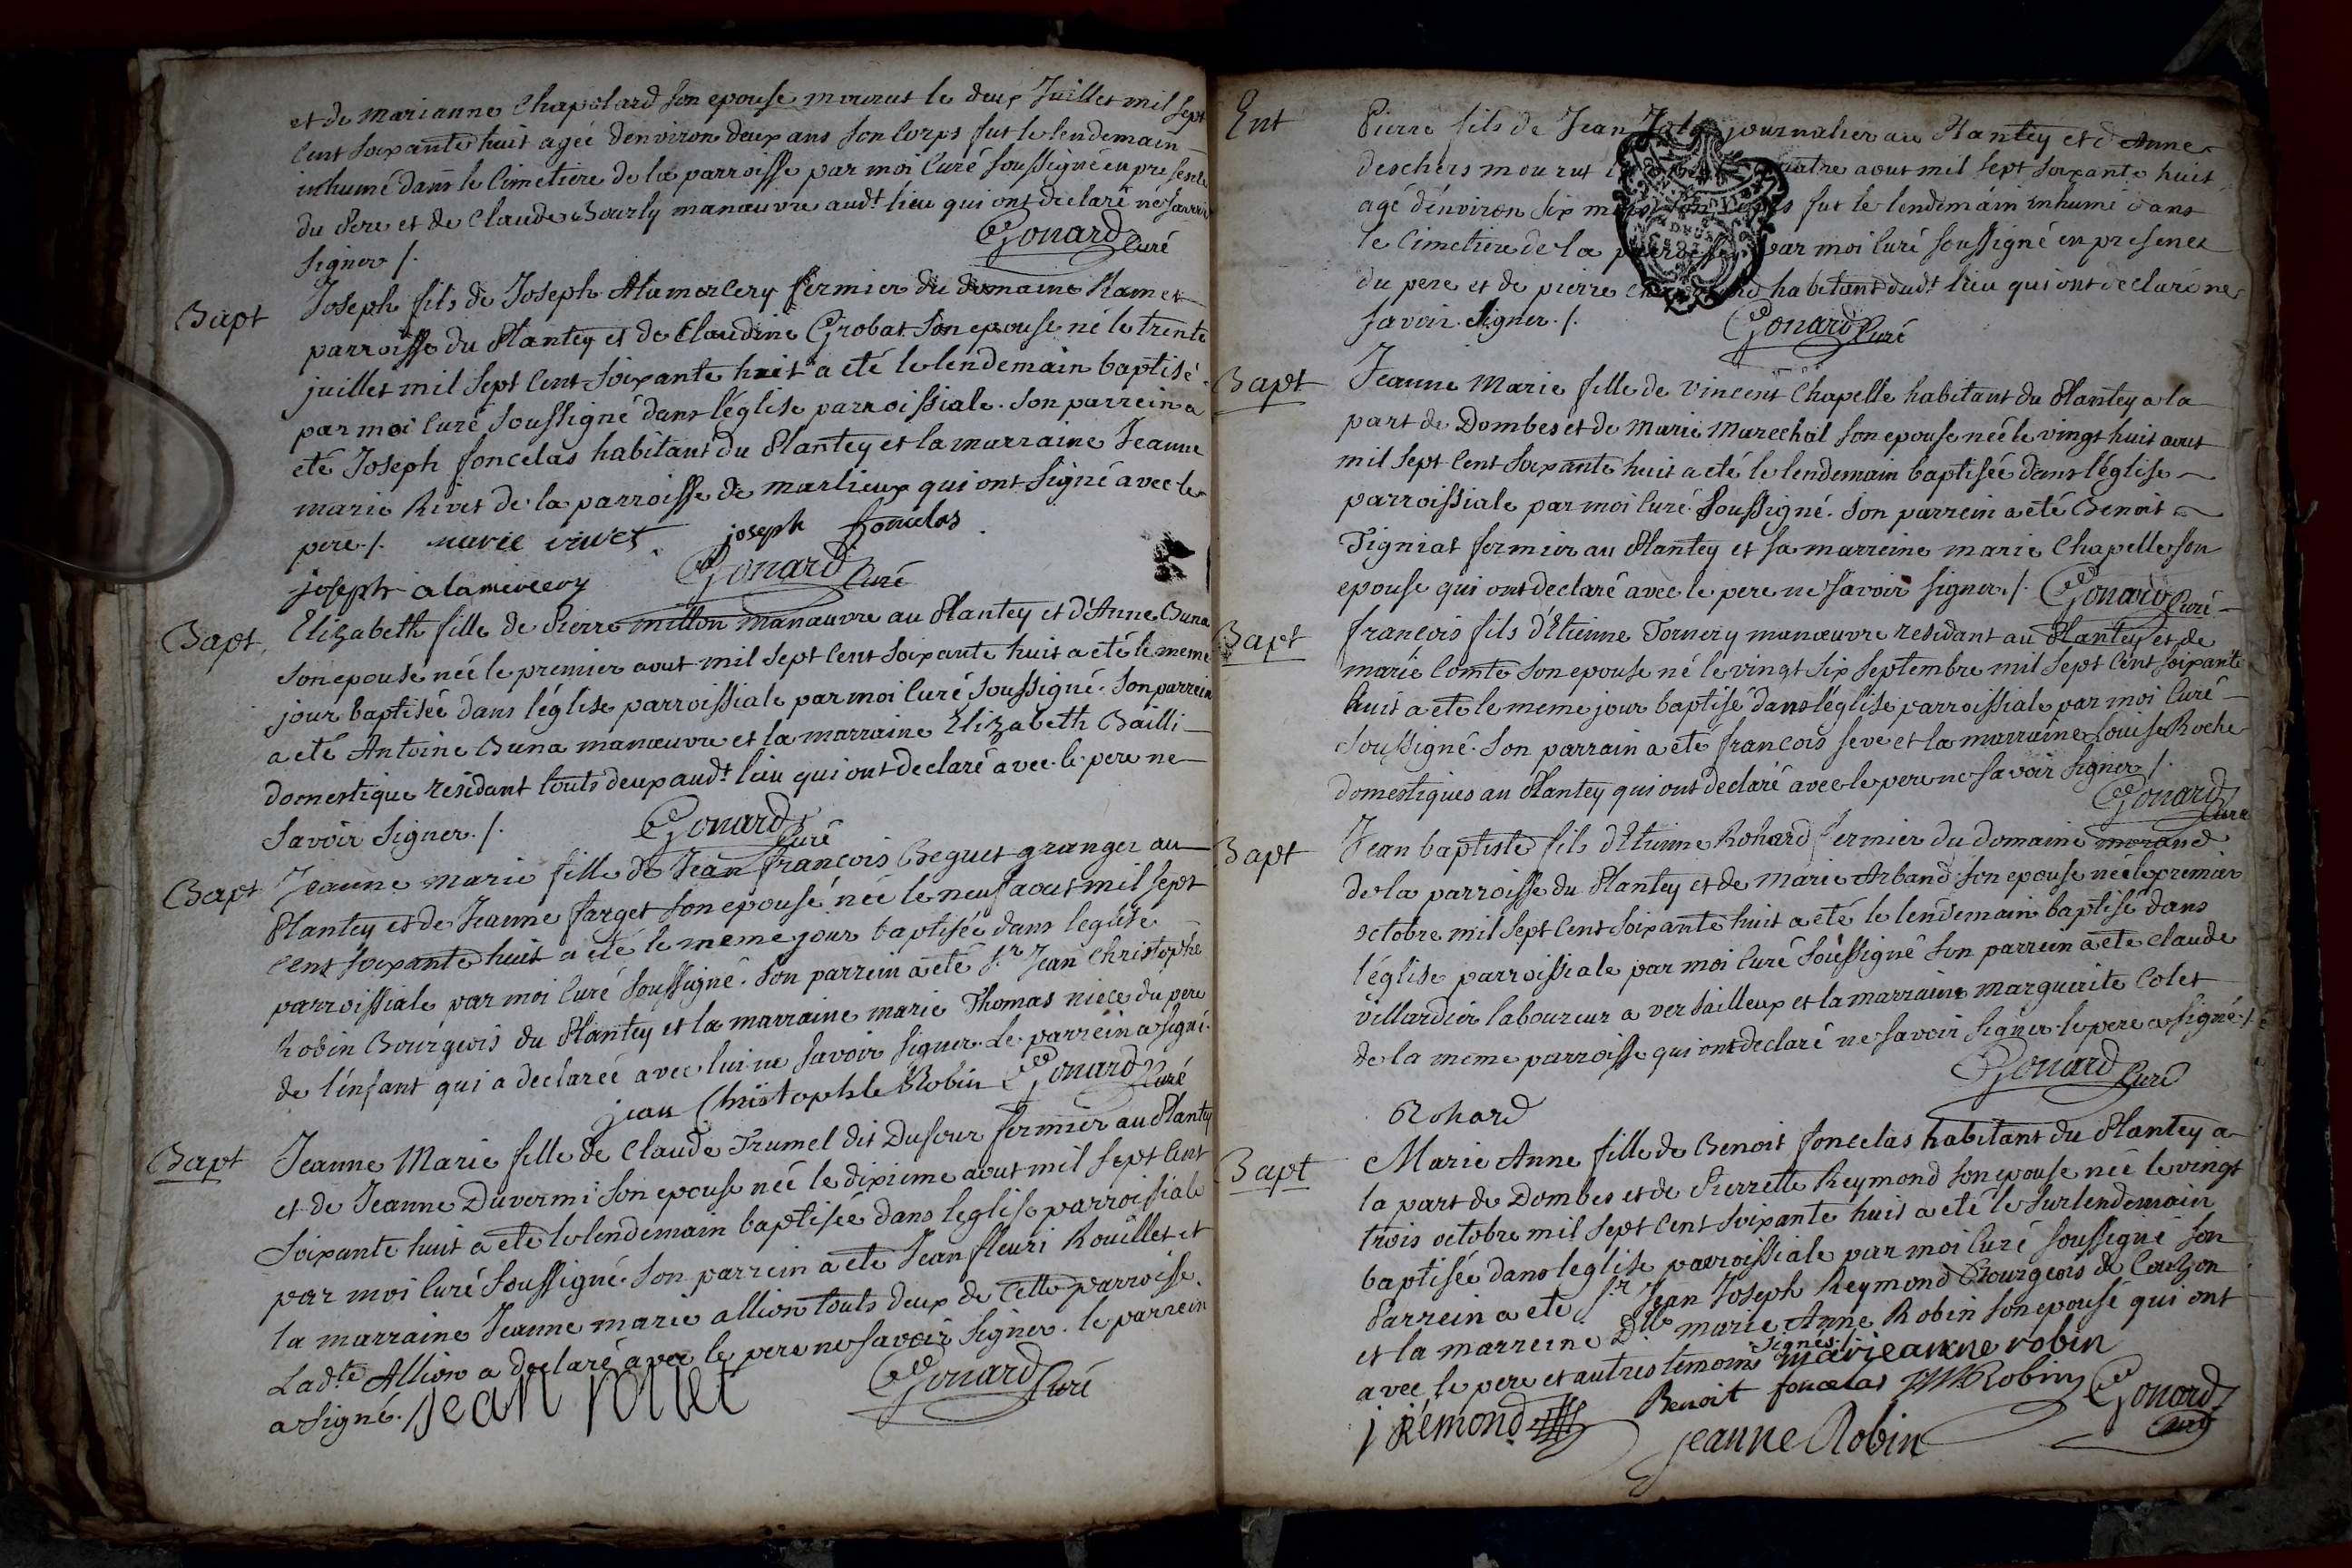 et de marianne Chapolard son epouse mourut le deux Juillet mil sept
Cent soixante huit agée denviron deux ans son Corps fut le lendemain
inhumé dans le Cimetiere de la parroisse par moi Curé soussigné en presence
du Pere et de Claude Bourly manœuvre audt lieu qui ont declaré ne savoir
signer /. Gonard Curé
Bapt Joseph fils de Joseph Alamercery fermier du domaine Ramet
parroisse du Plantey et de Claudine Grobat son epouse né le trente
juillet mil sept Cent soixante huit a eté le lendemain baptisé
par moi Curé soussigné dans l'église parroissiale. Son parrein a
eté Joseph foncelas habitant du Plantey et la marraine Jeanne
marie Rivet de la parroisse de marlieux qui ont signé avec le
pere /. marie rivet joseph foncelas
joseph alamercery Gonard Curé
Bapt. Elizabeth fille de Pierre millon manœuvre au Plantey et d'Anne Buna
son epouse née le premier aout mil sept Cent soixante huit a eté le meme
jour baptisée dans l'église parroissiale par moi Curé soussigné. Son parrein
a eté Antoine Buna manœuvre et la marraine Elizabeth Bailli
domestique residant touts deux audt lieu qui ont declaré avec le pere ne
savoir signer. /. Gonard Curé
Bapt Jeanne marie fille de Jean françois Beguet granger au
Plantey et de Jeanne farget son epouse née le neuf aout mil sept
Cent soixante huit a eté le meme jour baptisée dans leglise
parroissiale par moi Curé soussigné. Son parrein a eté Sr Jean Christophe
Robin Bourgeois du Plantey et la marraine marie Thomas niece du pere
de l'enfant qui a declarée avec lui ne savoir signer. Le parrein a signé.
jean Christophle Robin Gonard Curé
Bapt Jeanne Marie fille de Claude Trumel dit Dufour fermier au Plantey
et de Jeanne Duvermi son epouse née le dixieme aout mil sept Cent
Soixante huit a eté le lendemain baptisée dans leglise parroissiale
par moi Curé soussigné. Son parrein a eté Jean fleuri Rouillet et
la marraine Jeanne marie allion touts deux de Cette parroisse.
Ladte Allion a declaré avec le pere ne savoir signer. le parrein
a signé. Jean Gonard Curé
Ent Pierre fils de Jean journalier au Plantey et d'Anne
deschers mourut aout mil sept soixante huit
agé d'environ six mois son Corps fut le lendemain inhumé dans
le Cimetiere de la parroisse par moi Curé soussigné en presence
du pere et de pierre habitant dudt lieu qui ont declaré ne
savoir signer. /. Gonard Curé
Bapt Jeanne Marie fille de Vincent Chapelle habitant du Plantey a la
part de Dombes et de Marie Marechal son epouse née le vingt huit aout
mil sept Cent soixante huit a eté le lendemain baptisée dans l'église
parroissiale par moi Curé Soussigné. Son parrein a eté Benoit
Tigniat fermier au Plantey et sa marreine marie Chapelle son
epouse qui ont declaré avec le pere ne savoir signer /. Gonard Curé
Bapt françois fils d'Etienne Tornery manœuvre residant au Plantey et de
marie Comte son epouse né le vingt six septembre mil sept Cent soixante
huit a eté le meme jour baptisé dans l'église parroissiale par moi Curé
soussigné. Son parrain a eté françois seve et la marraine Louise Roche
domestiques au Plantey qui ont declaré avec le pere ne savoir signer /.
Gonard Curé
Bapt Jean baptiste fils d'Etienne Rohard fermier du domaine morand
de la parroisse du Plantey et de Marie Arband son epouse né le premier
octobre mil sept Cent soixante huit a eté le lendemain baptisé dans
l'église parroissiale par moi Curé soussigné son parrein a eté Claude
villardier laboureur a versailleux et la marraine marguerite Colet
de la meme parroisse qui ont declaré ne savoir signer le pere a signé /.
Gonard Curé
Rohard
Bapt Marie Anne fille de Benoit foncelas habitant du Plantey a
la part de Dombes et de Pierrette Reymond son epouse née le vingt
trois octobre mil sept Cent soixante huit a eté le surlendemain
baptisée dans leglise parroissiale par moi Curé soussigné son
Parrein a eté Sr Jean Joseph Reymond Bourgeois de Couzon
et la marreine Dlle marie Anne Robin son epouse qui ont
avec le pere et autres temoins signés /. marie anne robin
Benoit foncelas Robin Gonard
j Rémond jeanne Robin curé